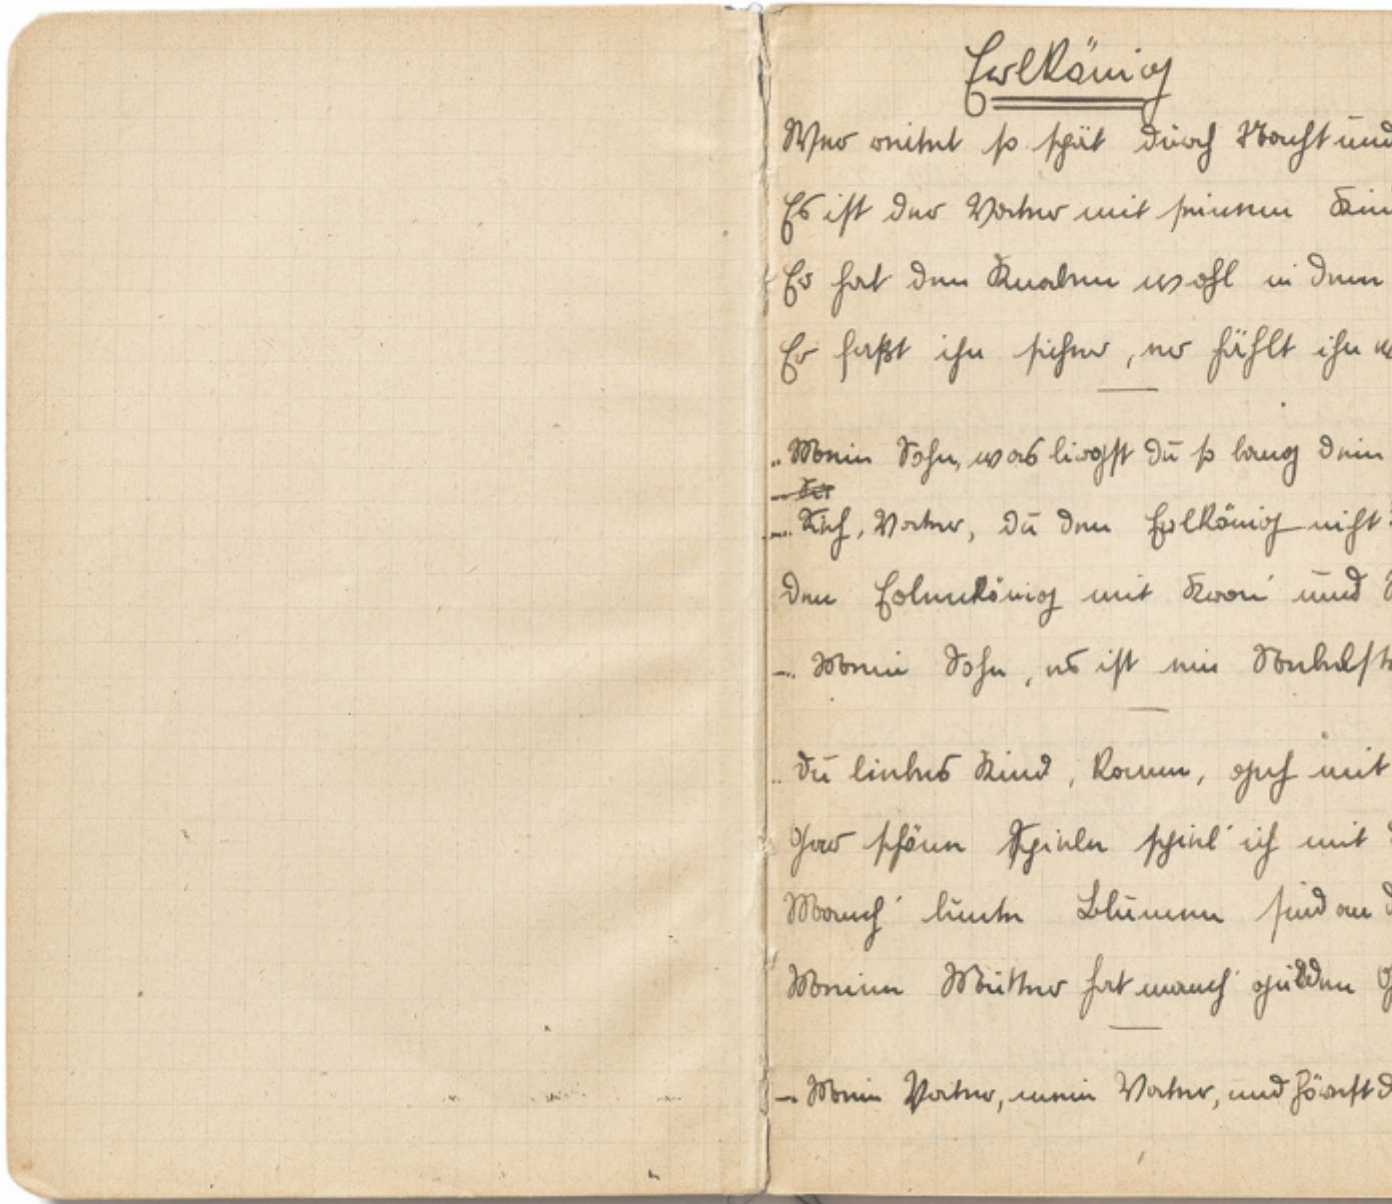 Erlkönig
Wer reitet so spät durch Nacht und
Es ist der Vater mit seinem Kin
Er hat den Knaben wohl in dem
Er faßt ihn sicher, er hählt ihn w
„Mein Sohn, was birgst du so bang dein
–„Sieh, Vater, du den Erlkönig nicht
den Erlenkönig mit Kron' und
–„Mein Sohn, es ist ein Nebelst
„Du liebes Kind, komm, geh mit
Gar schöne Spiele spiel' ich mit
Manch' bunte Blumen sind an d
Meine Mutter hat manch' gülden G
– Mein Vater, mein Vater, und hörest d